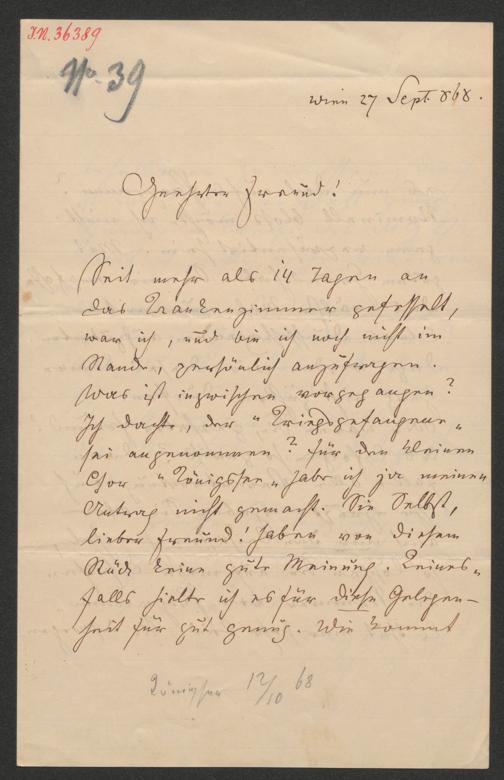 I.N. 36389
No. 39
Wien 27 Sept. 868.
Geehrter Freund!
Seit mehr als 14 Tagen an
das Krankenzimmer gefesselt,
war ich, und bin ich noch nicht im
Stande, persönlich anzufragen.
Was ist inzwischen vorgegangen?
Ich dachte, der "Kriegsgefangene"
sei angenommen? Für den kleinen
Chor "Königssee" habe ich ja meinen
Antrag nicht gemacht. Sie Selbst,
lieber Freund! haben von diesem
Stück keine gute Meinung. Keines-
falls hielte ich es für diese Gelegen-
heit für gut genug. Wie kommt
Königssee 12/10 68